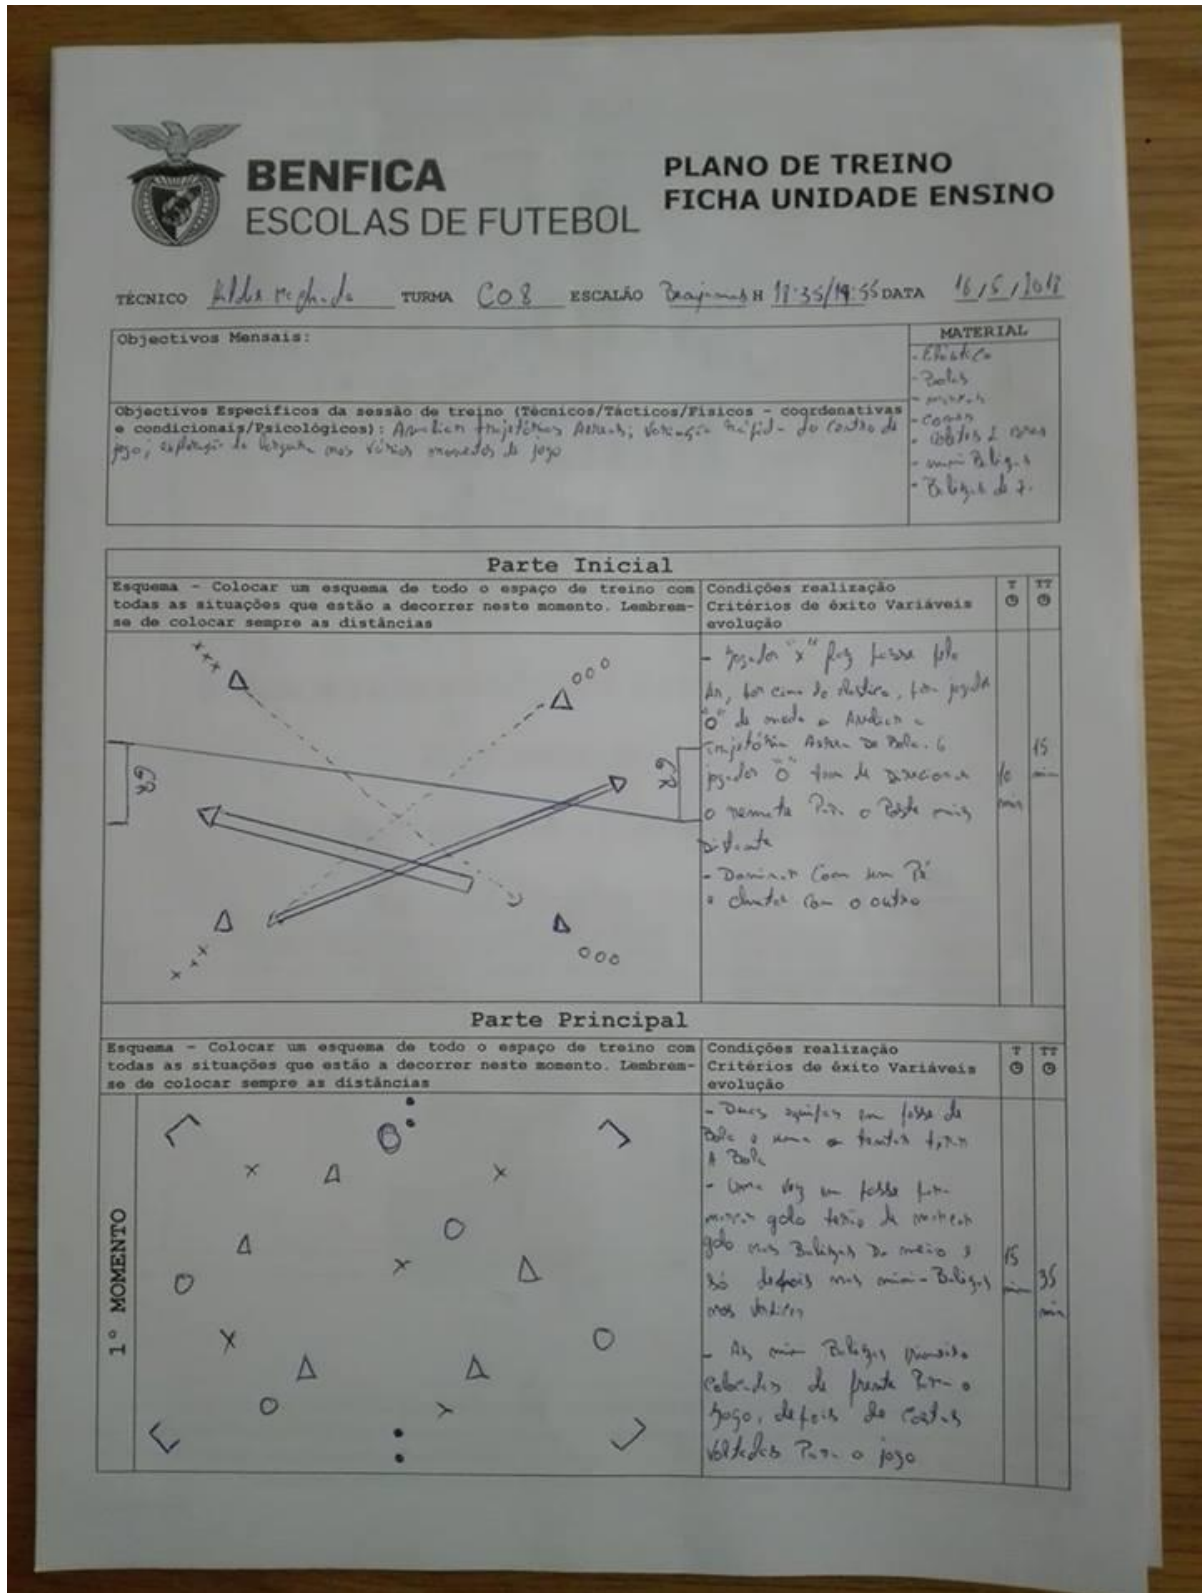 BENFICA
ESCOLAS DE FUTEBOL
PLANO DE TREINO
FICHA UNIDADE ENSINO
TÉCNICO TURMA C08 ESCALÃO H DATA 16/5/2018
Objectivos Mensais:
MATERIAL
- Elástico
- Bolas
- Cones
- mini Balizas
- Balizas de 7.
Objectivos Específicos da sessão de treino (Técnicos/Tácticos/Físicos - coordenativas
e condicionais/Psicológicos): Avaliar trajetórias Aéreas; Variação rápida do Centro de
jogo; exploração da largura nos vários momentos de jogo
Parte Inicial
Esquema - Colocar um esquema de todo o espaço de treino com
todas as situações que estão a decorrer neste momento. Lembrem-
se de colocar sempre as distâncias
Condições realização
Critérios de êxito Variáveis
evolução
T TT
xxx
ooo
GR
GR
xxx
ooo
- Jogador "x" faz passe pelo
Ar, por cima do elástico, para jogador
"O" de modo a Avaliar a
trajetória Aérea Da Bola. O
jogador "O" tem de Direcionar
o remate Para o Poste mais
Distante
- Dominar Com um Pé
e chutar Com o outro
10
min
15
min
Parte Principal
Esquema - Colocar um esquema de todo o espaço de treino com
todas as situações que estão a decorrer neste momento. Lembrem-
se de colocar sempre as distâncias
Condições realização
Critérios de êxito Variáveis
evolução
T TT
1º MOMENTO
- Duas equipas em posse de
Bola e uma a tentar
A Bola
- Uma vez em posse para
marcar golo terão de marcar
golo nas Balizas Do meio e
só depois nas mini-Balizas
nos vértices
- As mini Balizas primeiro
colocadas de frente Para o
Jogo, depois de Costas
Voltadas Para o jogo
15
min
35
min